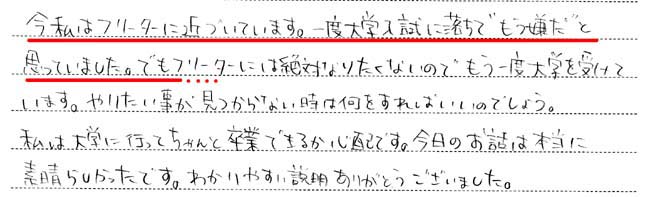 今私はフリーターに近づいています。一度大学入試に落ちて"もう嫌だ"と
思っていました。でもフリーターには絶対なりたくないのでもう一度大学を受けて
います。やりたい事が見つからない時は何をすればいいのでしょう。
私は大学に行ってちゃんと卒業できるか心配です。今日のお話は本当に
素晴らしかったです。わかりやすい説明ありがとうございました。